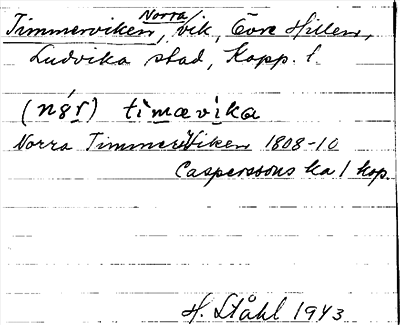 Norra
Timmerviken, vik, Övre Hillen,
Ludvika stad, Kopp. l.
(nǫ́r) timævika
Norra TimmerViken 1808-10
Casperssons ka / kop.
H. Ståhl 1943